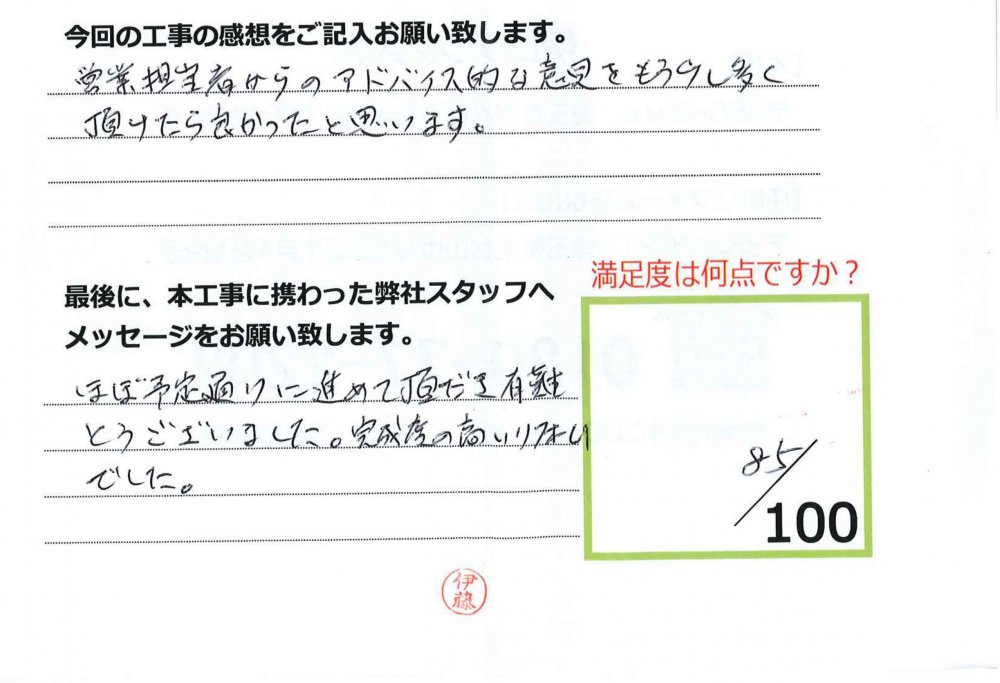 今回の工事の感想をご記入お願い致します。
営業担当者からのアドバイス的な意見をもう少し多く
頂けたら良かったと思います。
満足度は何点ですか？
最後に、本工事に携わった弊社スタッフへ
メッセージをお願い致します。
ほぼ予定通りに進めて頂だき有難
とうございました。完成度の高いリフォーム
でした。
85/100
伊藤